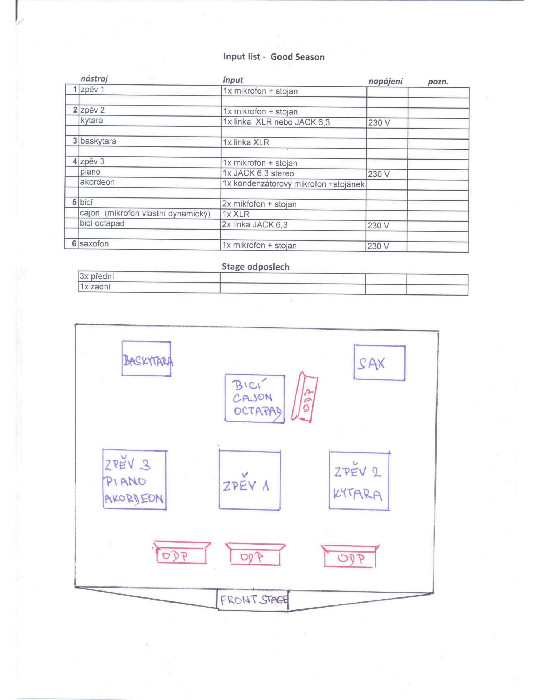 Input list - Good Season
nástroj input napájení pozn.
1 zpěv 1 1x mikrofon + stojan
2 zpěv 2 1x mikrofon + stojan
kytara 1x linka XLR nebo JACK 6,3 230 V
3 baskytara 1x linka XLR
4 zpěv 3 1x mikrofon + stojan
piano 1x JACK 6.3 stereo 230 V
akordeon 1x kondenzátorový mikrofon +stojánek
5 bicí 2x mikrofon + stojan
cajon (mikrofon vlastní dynamický) 1x XLR
bicí octapad 2x linka JACK 6,3 230 V
6 saxofon 1x mikrofon + stojan 230 V
Stage odposlech
3x přední
1x zadní
BASKYTARA
SAX
BICÍ
CAJON
OCTAPAD
ODP
ZPĚV 3
PIANO
AKORDEON
ZPĚV 1
ZPĚV 2
KYTARA
ODP ODP ODP
FRONT STAGE